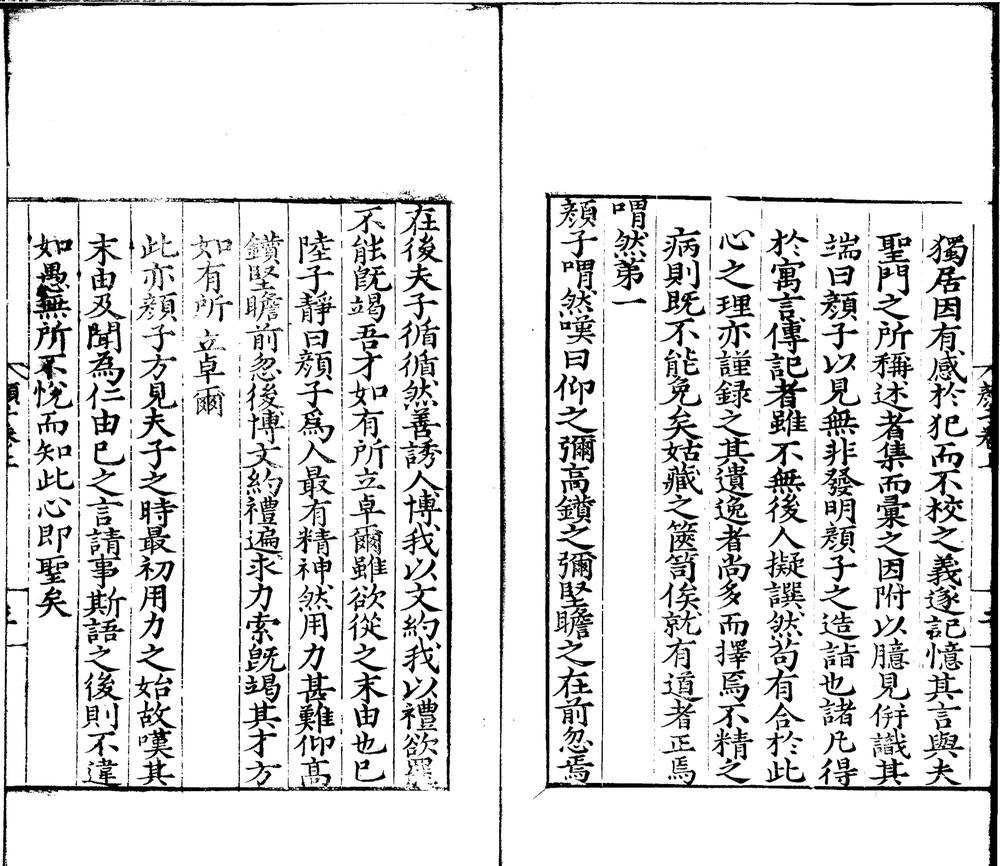 獨居因有感於犯而不校之義遂記憶其言與夫
聖門之所稱述者集而彙之因附以臆見併識其
端曰顏子以見無非發明顏子之造詣也諸凡得
於寓言傳記者雖不無後人擬譔然苟有合於此
心之理亦謹録之其遺逸者尚多而擇焉不精之
病則既不能免矣姑藏之篋笥俟就有道者正焉
喟然第一
顏子喟然嘆曰仰之彌高鑽之彌堅瞻之在前忽焉
在後夫子循循然善誘人博我以文約我以禮欲罷
不能旣竭吾才如有所立卓爾雖欲從之末由也已
陸子靜曰顏子爲人最有精神然用力甚難仰高
鑽堅瞻前忽後博文約禮遍求力索旣竭其才方
如有所立卓爾
此亦顏子方見夫子之時最初用力之始故嘆其
末由及聞為仁由已之言請事斯語之後則不違
如愚無所不悅而知此心即聖矣